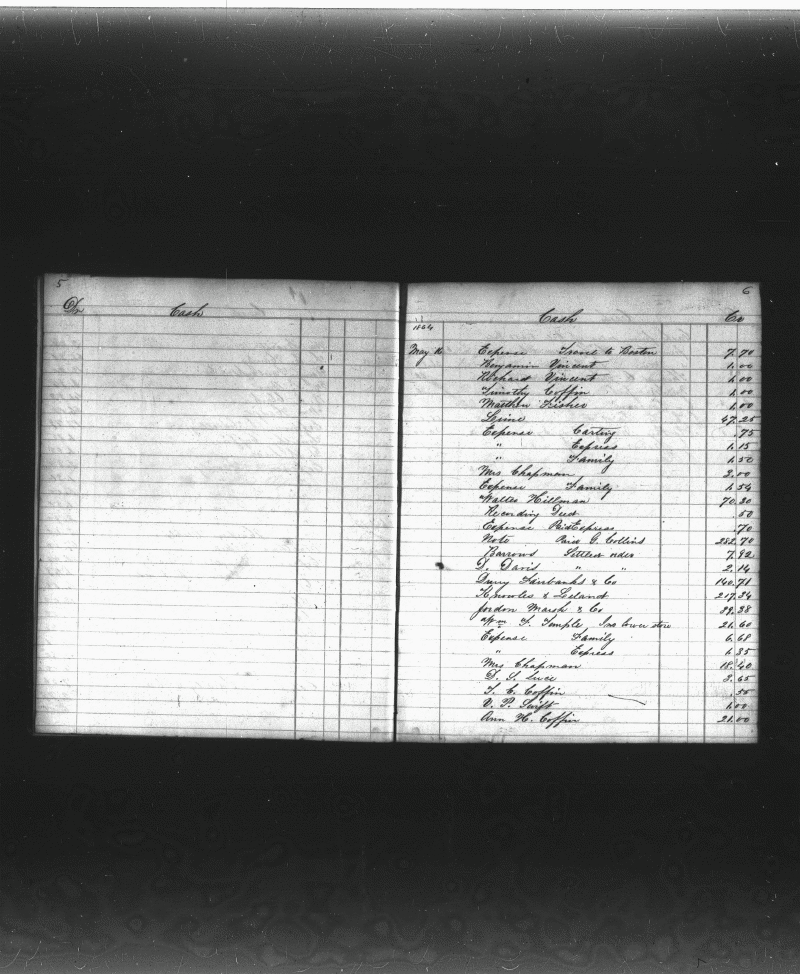 5
Dr Cash
6
Cash Cr
1864
May 16 Expense Travel to Boston 7.70
Benjamin Vincent 1.00
Richard Vincent 1.00
Timothy Coffin 1.00
Matthew Fisher 1.00
47.25
Expense Carting .75
" Express 1.15
" Family 1.50
Mrs Chapman 3.00
Expense Family 1.54
Walter Hillman 70.30
Recording Deed .50
Expense Paid Express .70
Note Paid G. Collins 252.70
Barrows Settled order 7.92
D. Davis " " 2.14
Fairbanks & Co 140.71
Knowles & Leland 217.34
Jordon Marsh & Co 89.38
Wm F. Temple, Ins lower store 21.60
Expense Family 6.68
" Express 1.35
Mrs Chapman 18.40
D. S. Luce 3.65
T. C. Coffin .55
V. P. Swift 1.00
Ann H. Coffin 21.00